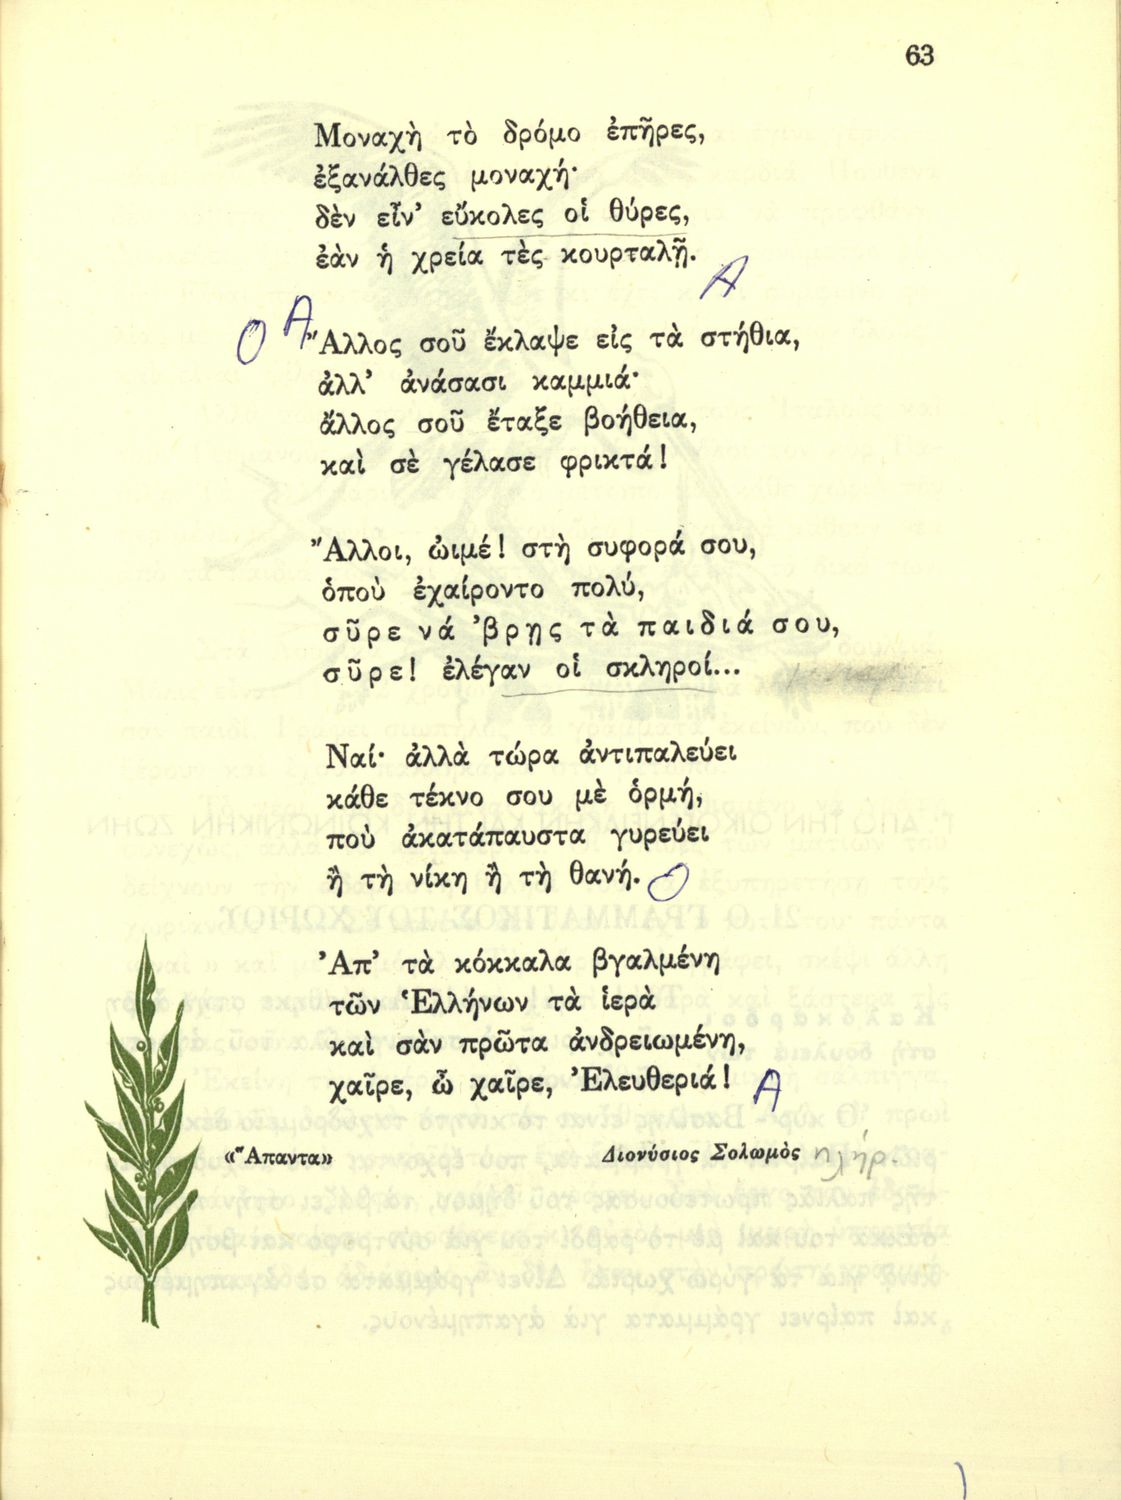 63
Μοναχὴ τὸ δρόμο ἐπῆρες,
ἐξανάλθες μοναχή·
δὲν εἶν’ εὔκολες οἱ θύρες,
ἐὰν ἡ χρεία τὲς κουρταλῇ.
Α
Ο Α
Ἄλλος σοῦ ἔκλαψε εἰς τὰ στήθια,
ἀλλ’ ἀνάσασι καμμιά·
ἄλλος σοῦ ἔταξε βοήθεια,
καὶ σὲ γέλασε φρικτά!
Ἄλλοι, ὠιμέ! στὴ συφορά σου,
ὁποὺ ἐχαίροντο πολύ,
σῦρε νά ’βρῃς τὰ παιδιά σου,
σῦρε! ἐλέγαν οἱ σκληροί...
Ναί· ἀλλὰ τώρα ἀντιπαλεύει
κάθε τέκνο σου μὲ ὁρμή,
ποὺ ἀκατάπαυστα γυρεύει
ἢ τὴ νίκη ἢ τὴ θανή. Ο
’Απ’ τὰ κόκκαλα βγαλμένη
τῶν Ἑλλήνων τὰ ἱερὰ
καὶ σὰν πρῶτα ἀνδρειωμένη,
χαῖρε, ὦ χαῖρε, Ἐλευθεριά! Α
«Ἅπαντα» Διονύσιος Σολωμὸς πλήρ.